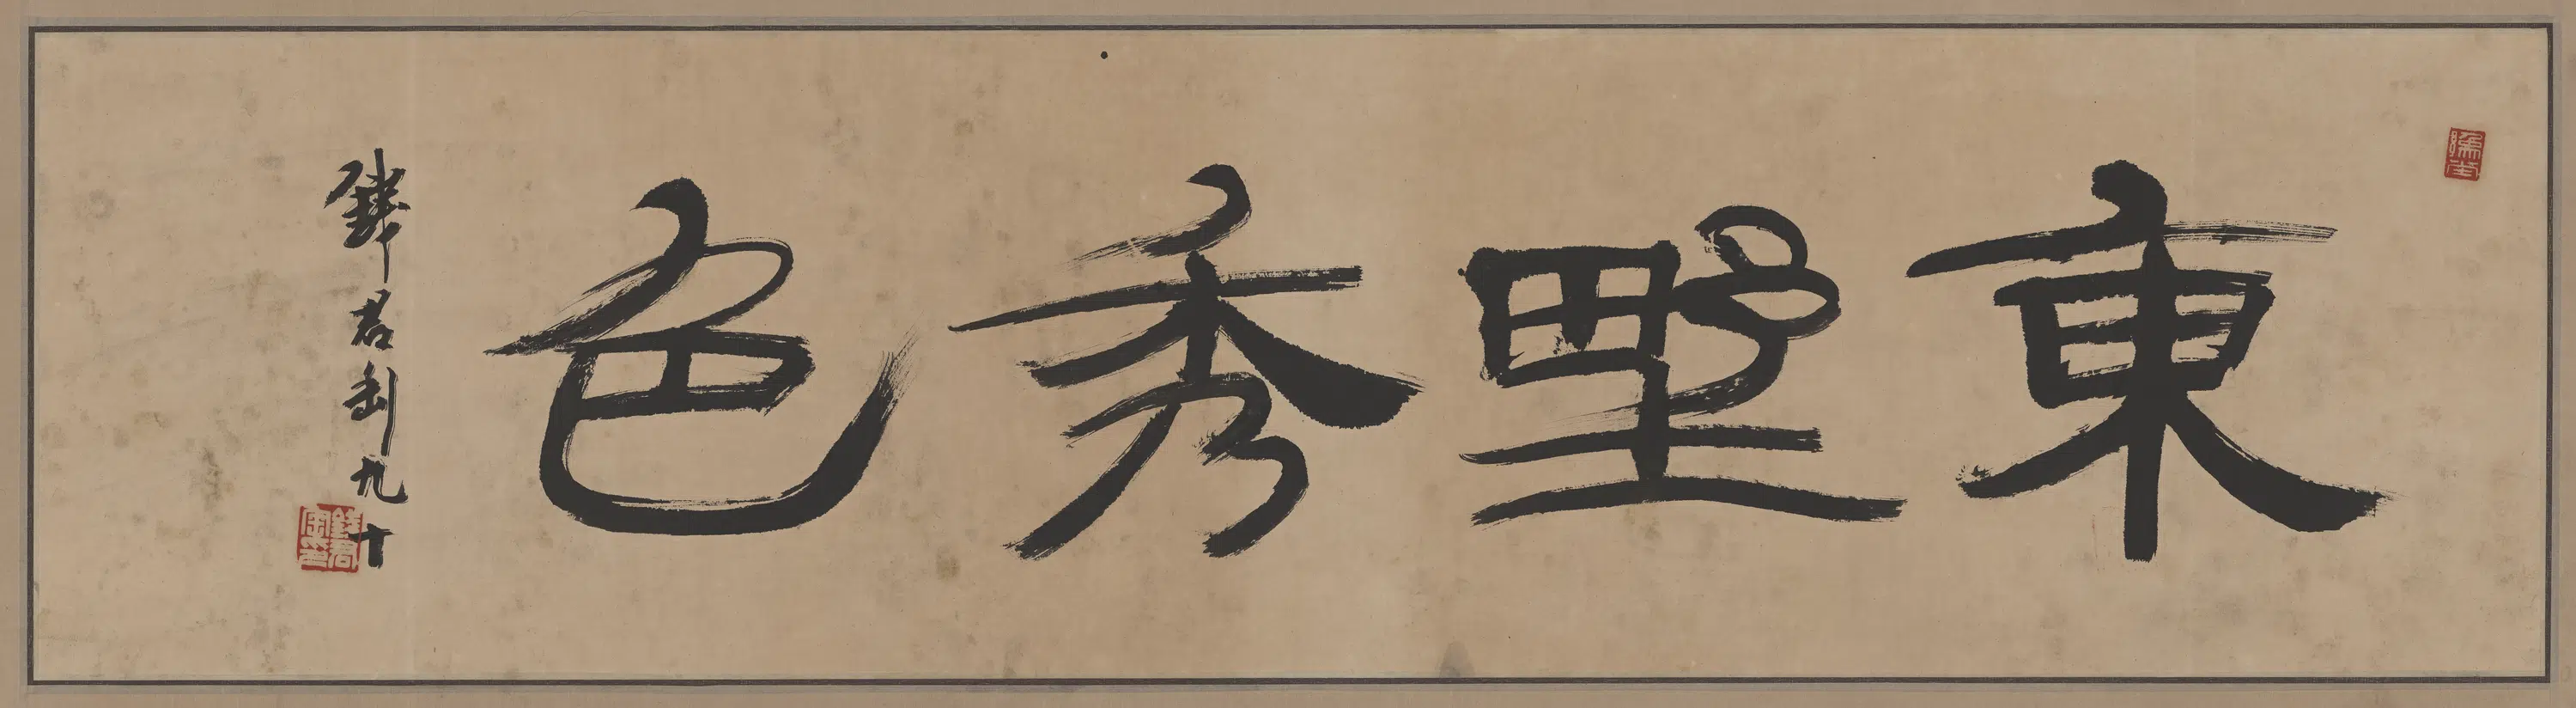 東野秀色
錢君匋九十
豫堂